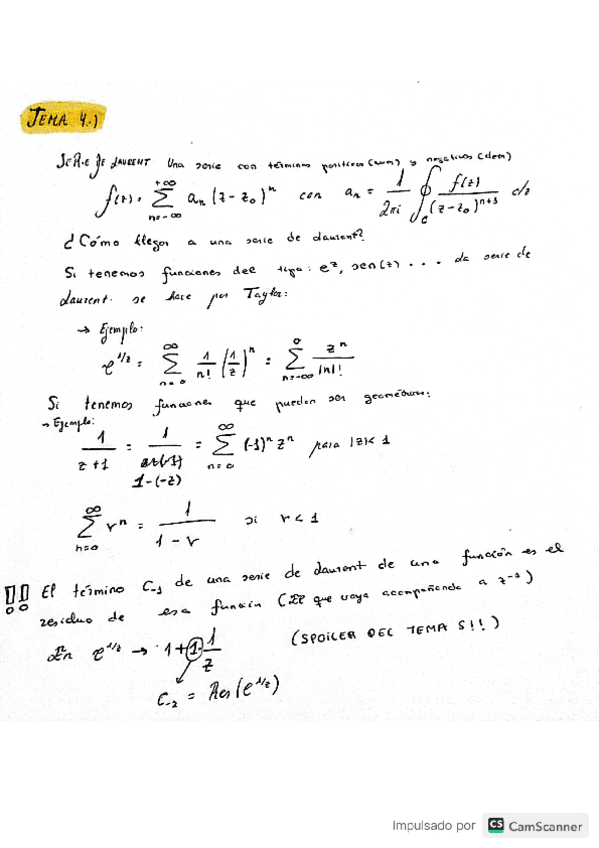 TEMA 4.)
SERIE DE LAURENT Una serie con términos positivos (num) y negativos (den)
f(z) = \sum_{n=-∞}^{+∞} a_n (z-z_0)^n con a_n = \frac{1}{2πi} \oint_C \frac{f(z)}{(z-z_0)^{n+1}} dz
¿Cómo llegar a una serie de Laurent?
Si tenemos funciones del tipo: e^z, sen(z) ... la serie de
Laurent se hace por Taylor:
→ Ejemplo:
e^{1/z} = \sum_{n=0}^{∞} \frac{1}{n!} (\frac{1}{z})^n = \sum_{n=-∞}^{0} \frac{z^n}{|n|!}
Si tenemos funciones que puedan ser geométricas:
→ Ejemplo:
\frac{1}{z+1} = \frac{1}{1-(-z)} = \sum_{n=0}^{∞} (-1)^n z^n para |z|< 1
\sum_{n=0}^{∞} r^n = \frac{1}{1-r} si r < 1
!! El término C_{-1} de una serie de Laurent de una función es el
residuo de esa función (El que vaya acompañando a z^{-1})
En e^{1/z} → 1+1·\frac{1}{z} (SPOILER DEL TEMA 5!!)
C_{-1} = Res(e^{1/z})
Impulsado por CS CamScanner